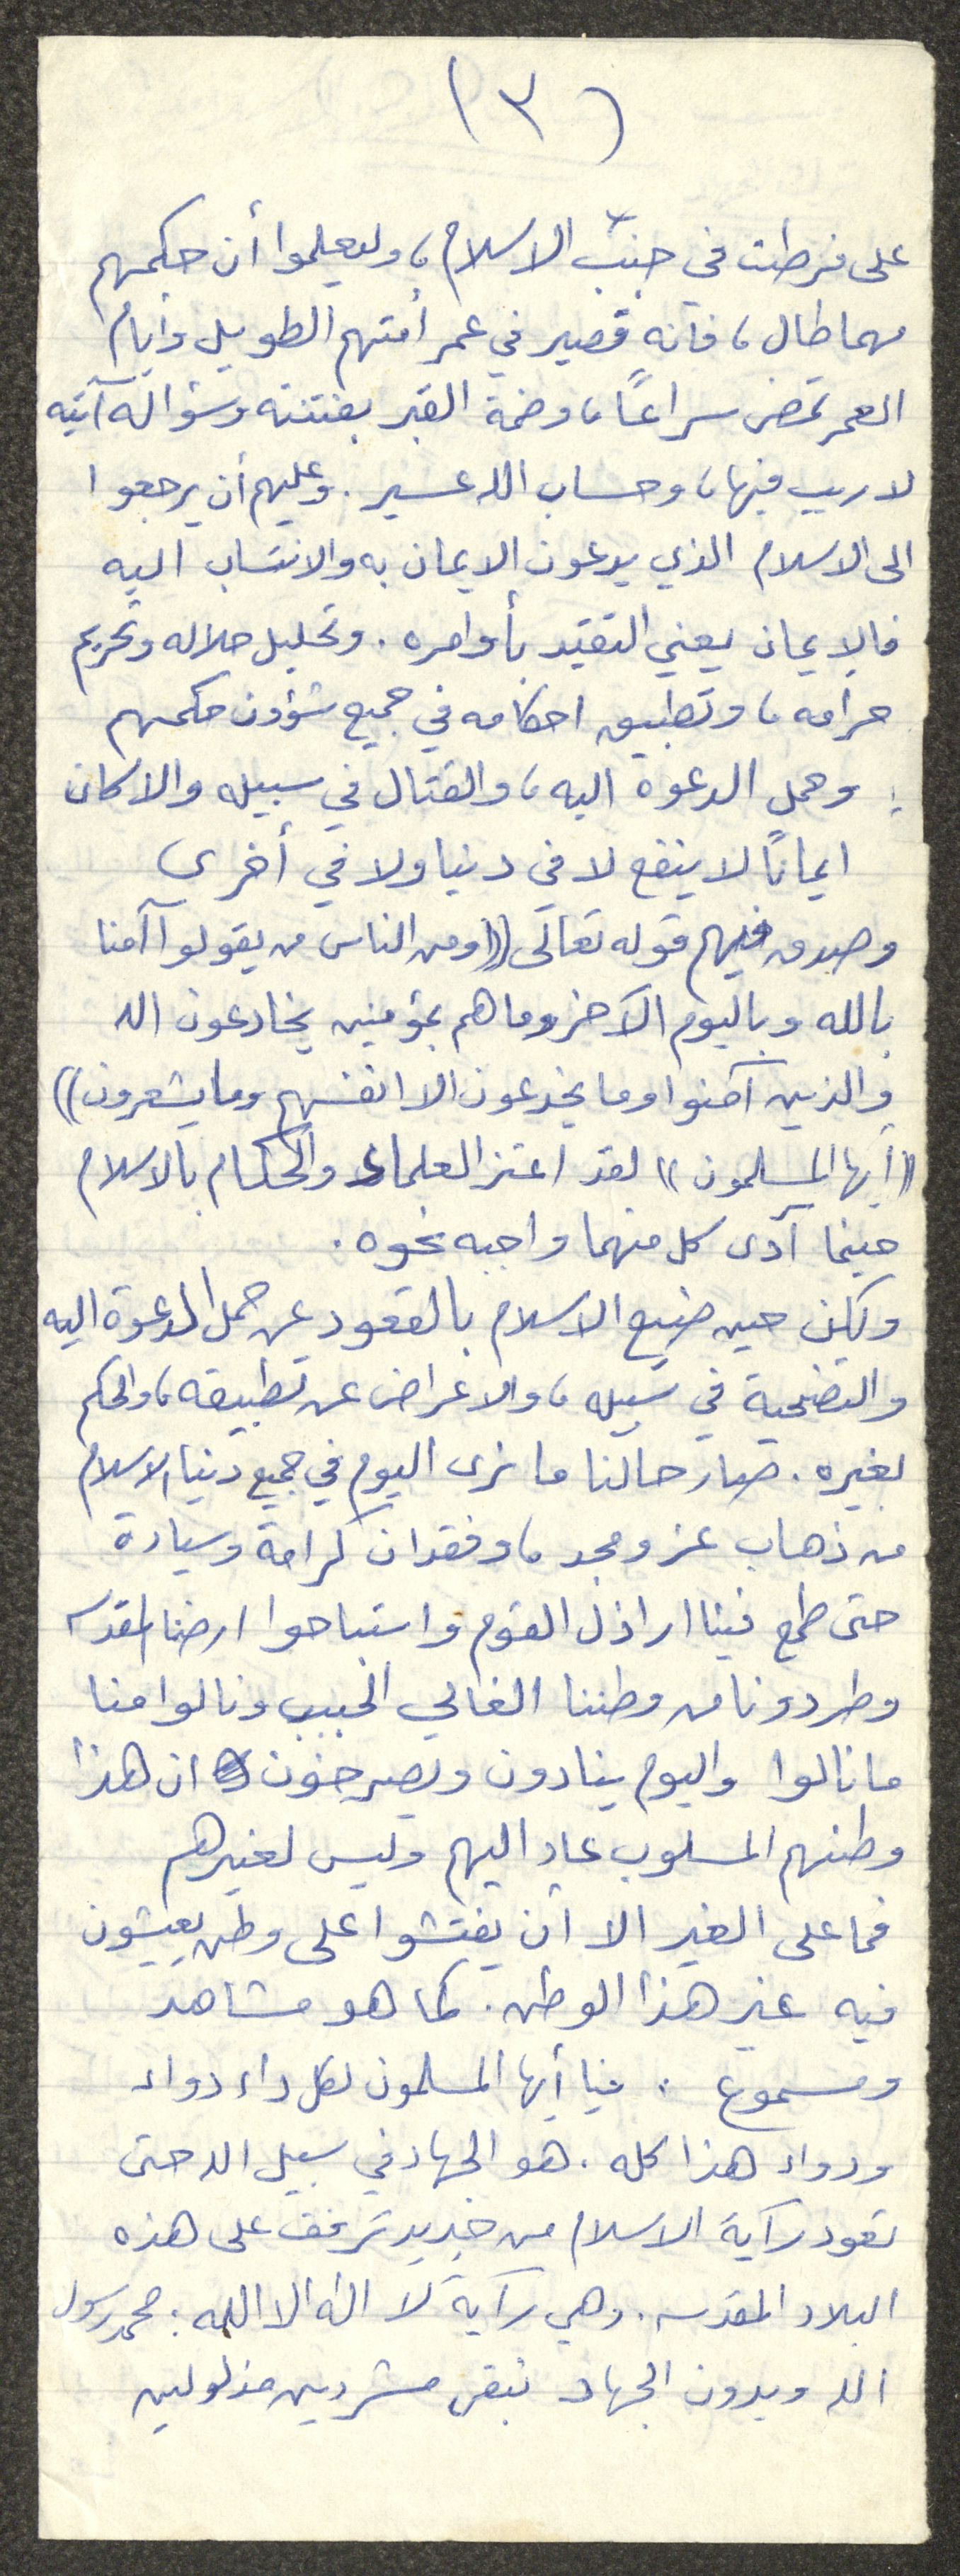 (٣)
على فرطت في جنب الاسلام، وليعلموا أن حكمهم
مهما طال، فانه قصير في عمر أمتهم الطويل وأيام
العمر تمضى سراعاً، وضمة القبر بفتنته وسؤاله آتيه
لا ريب فيها، وحساب الله عسير. وعليهم أن يرجعوا
الى الاسلام الذي يدعون الايمان به والانتساب اليه
فالايمان يعني التقيد بأوامره. وتحليل حلاله وتحريم
حرامه، وتطبيق احكامه في جميع شؤون حكمهم
وحمل الدعوة اليه، والقتال في سبيله والا كان
ايماناً لا ينفع لا في دنيا ولا في أخرى
وصدق فيهم قوله تعالى ((ومن الناس من يقولوا آمنا
بالله وباليوم الآخر وما هم بمؤمنين يخادعون الله
والذين آمنوا وما يخدعون الا انفسهم وما يشعرون))
((أيها المسلمون)) لقد اعتز العلماء والحكام بالاسلام
حينما آدى كل منهما واجبه نحوه.
ولكن حين ضيع الاسلام بالقعود عن حمل الدعوة اليه
والتضحية في سبيله، والاعراض عن تطبيقه، والحكم
بغيره. صار حالنا ما نرى اليوم في جميع دنيا الاسلام
من ذهاب عز ومجد، وفقدان كرامة وسيادة
حتى طمع فينا اراذل القوم واستباحوا ارضنا المقدسه
وطردونا من وطننا الغالي الحبيب ونالوا منا
ما نالوا واليوم ينادون ويصرخون ان هذا
وطنهم المسلوب عاد اليهم وليس لغيرهم
فما على الغير الا ان يفتشوا على وطن يعيشون
فيه غير هذا الوطن. كما هو مشاهد
ومسموع. فيا أيها المسلمون لكل داء دواء
ودواء هذا كله. هو الجهاد في سبيل الله حتى
تعود رآية الاسلام من جديد ترفف على هذه
البلاد المقدسه. وهي رآية لا اله الا الله: محمد رسول
الله وبدون الجهاد نبقى مشردين مذلولين